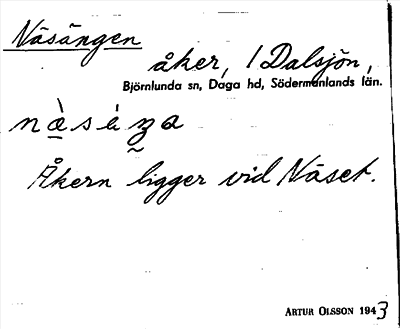 Näsängen
åker, / Dalsjön,
Björnlunda sn, Daga hd, Södermanlands län.
Åkern ligger vid Näset.
ARTUR OLSSON 1943